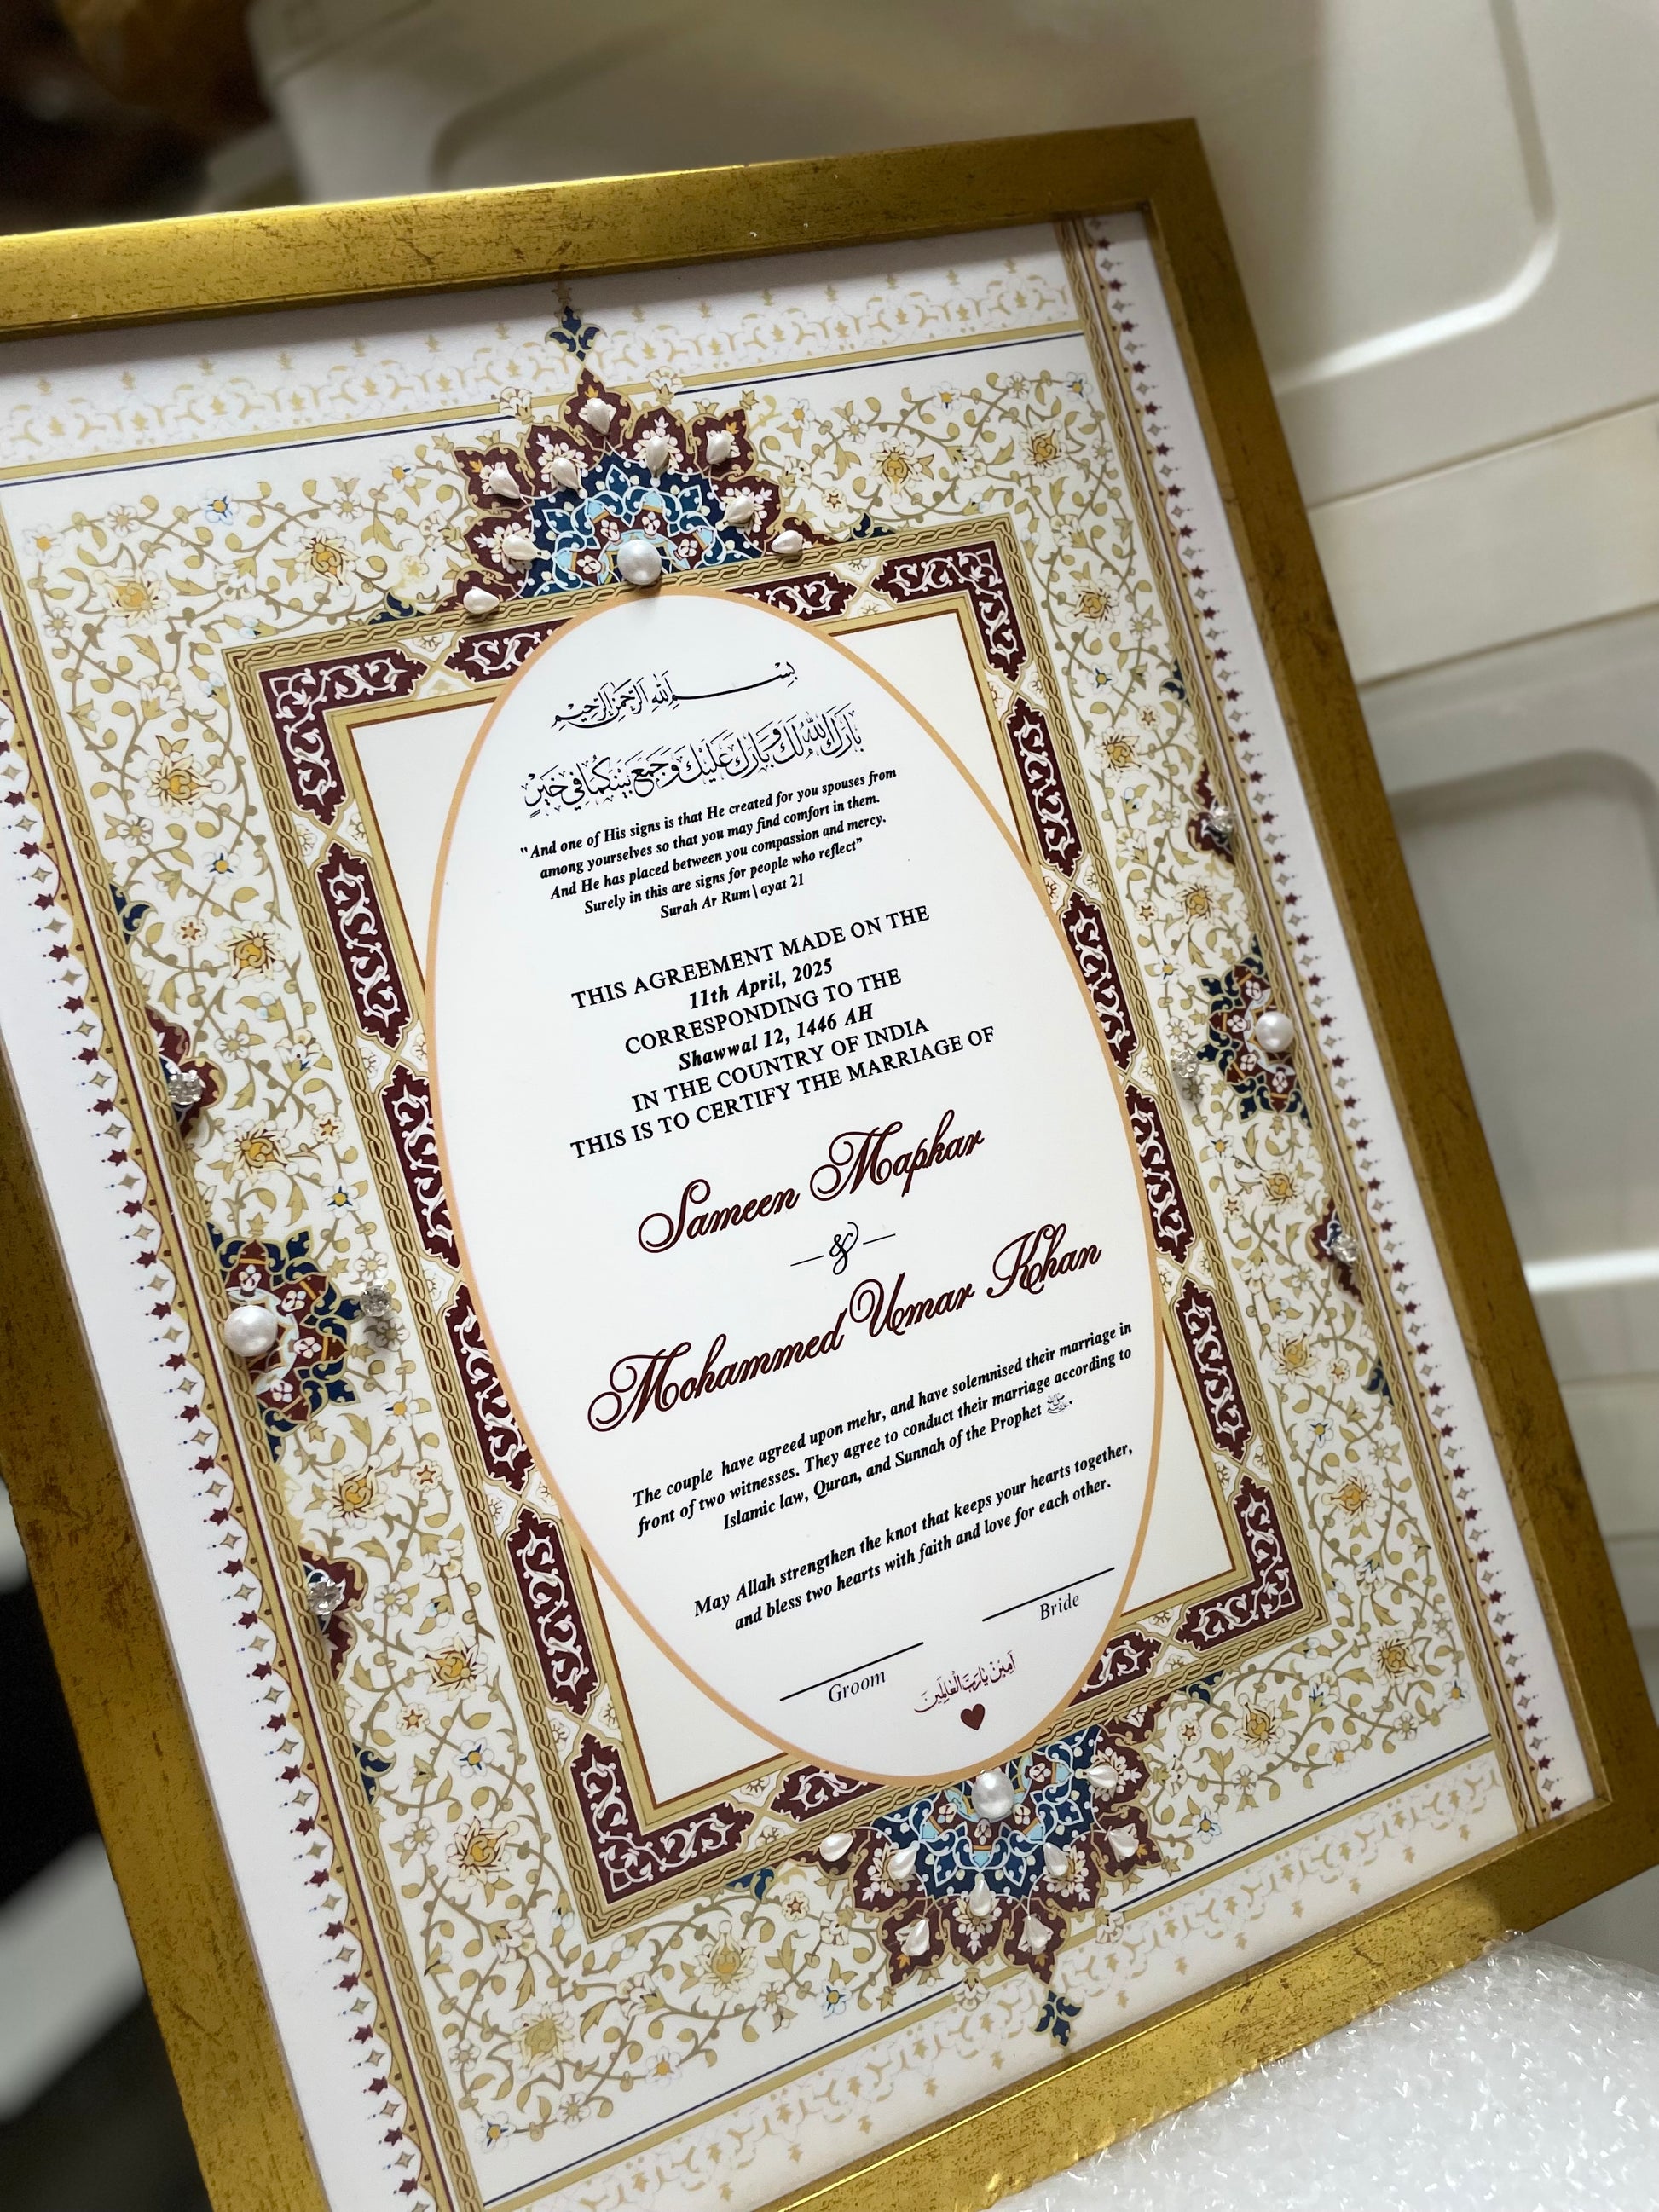 بسم الله الرحمن الرحيم
بَارَكَ اللهُ لَكَ وَبَارَكَ عَلَيْكَ وَجَمَعَ بَيْنَكُمَا فِي خَيْرٍ
"And one of His signs is that He created for you spouses from
among yourselves so that you may find comfort in them.
And He has placed between you compassion and mercy.
Surely in this are signs for people who reflect"
Surah Ar Rum\ ayat 21
THIS AGREEMENT MADE ON THE
11th April, 2025
CORRESPONDING TO THE
Shawwal 12, 1446 AH
IN THE COUNTRY OF INDIA
THIS IS TO CERTIFY THE MARRIAGE OF
Sameen Mapkar
&
Mohammed Umar Khan
The couple have agreed upon mehr, and have solemnised their marriage in
front of two witnesses. They agree to conduct their marriage according to
Islamic law, Quran, and Sunnah of the Prophet ﷺ.
May Allah strengthen the knot that keeps your hearts together,
and bless two hearts with faith and love for each other.
Groom
Bride
آمِيْنْ يَارَبَّ الْعَالَمِيْنَ